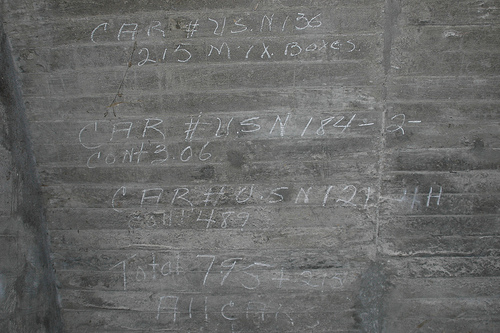 CAR # U.S.N 136
215 Mix. Boxes.
CAR # U.S N 184-2-
Cont 3.06
CAR # U.S N 121 HH
Cont 489
Total 795
All Cars